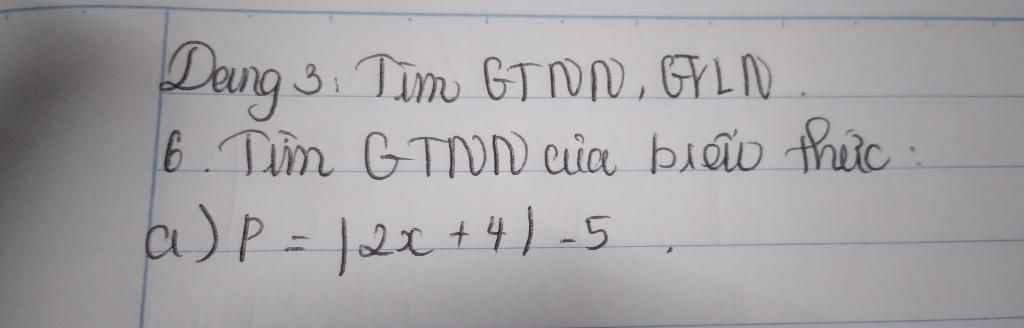 Dạng 3: Tìm GTNN, GTLN.
6. Tìm GTNN của biểu thức:
a) P = |2x + 4| - 5.